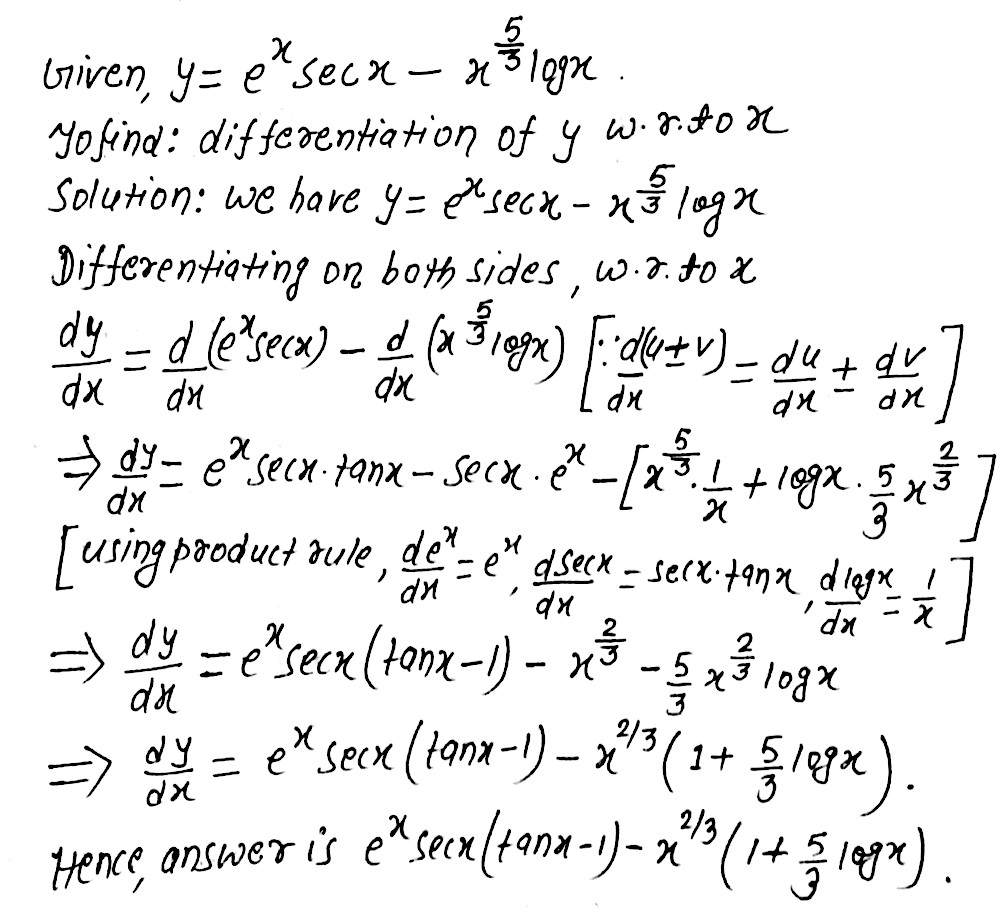 Given, y = e^x secx − x^(5/3) logx .
Tofind: differentiation of y w.r.to x
Solution: we have y = e^x secx − x^(5/3) logx
Differentiating on both sides, w.r.to x
dy/dx = d/dx (e^x secx) − d/dx (x^(5/3) logx) [∵ d(u±v)/dx = du/dx ± dv/dx]
⇒ dy/dx = e^x secx·tanx − secx·e^x − [x^(5/3)·1/x + logx·5/3 x^(2/3)]
[using product rule, de^x/dx = e^x, dsecx/dx = secx·tanx, dlogx/dx = 1/x]
⇒ dy/dx = e^x secx (tanx−1) − x^(2/3) − 5/3 x^(2/3) logx
⇒ dy/dx = e^x secx (tanx−1) − x^(2/3) (1 + 5/3 logx).
Hence, answer is e^x secx (tanx−1) − x^(2/3) (1 + 5/3 logx).